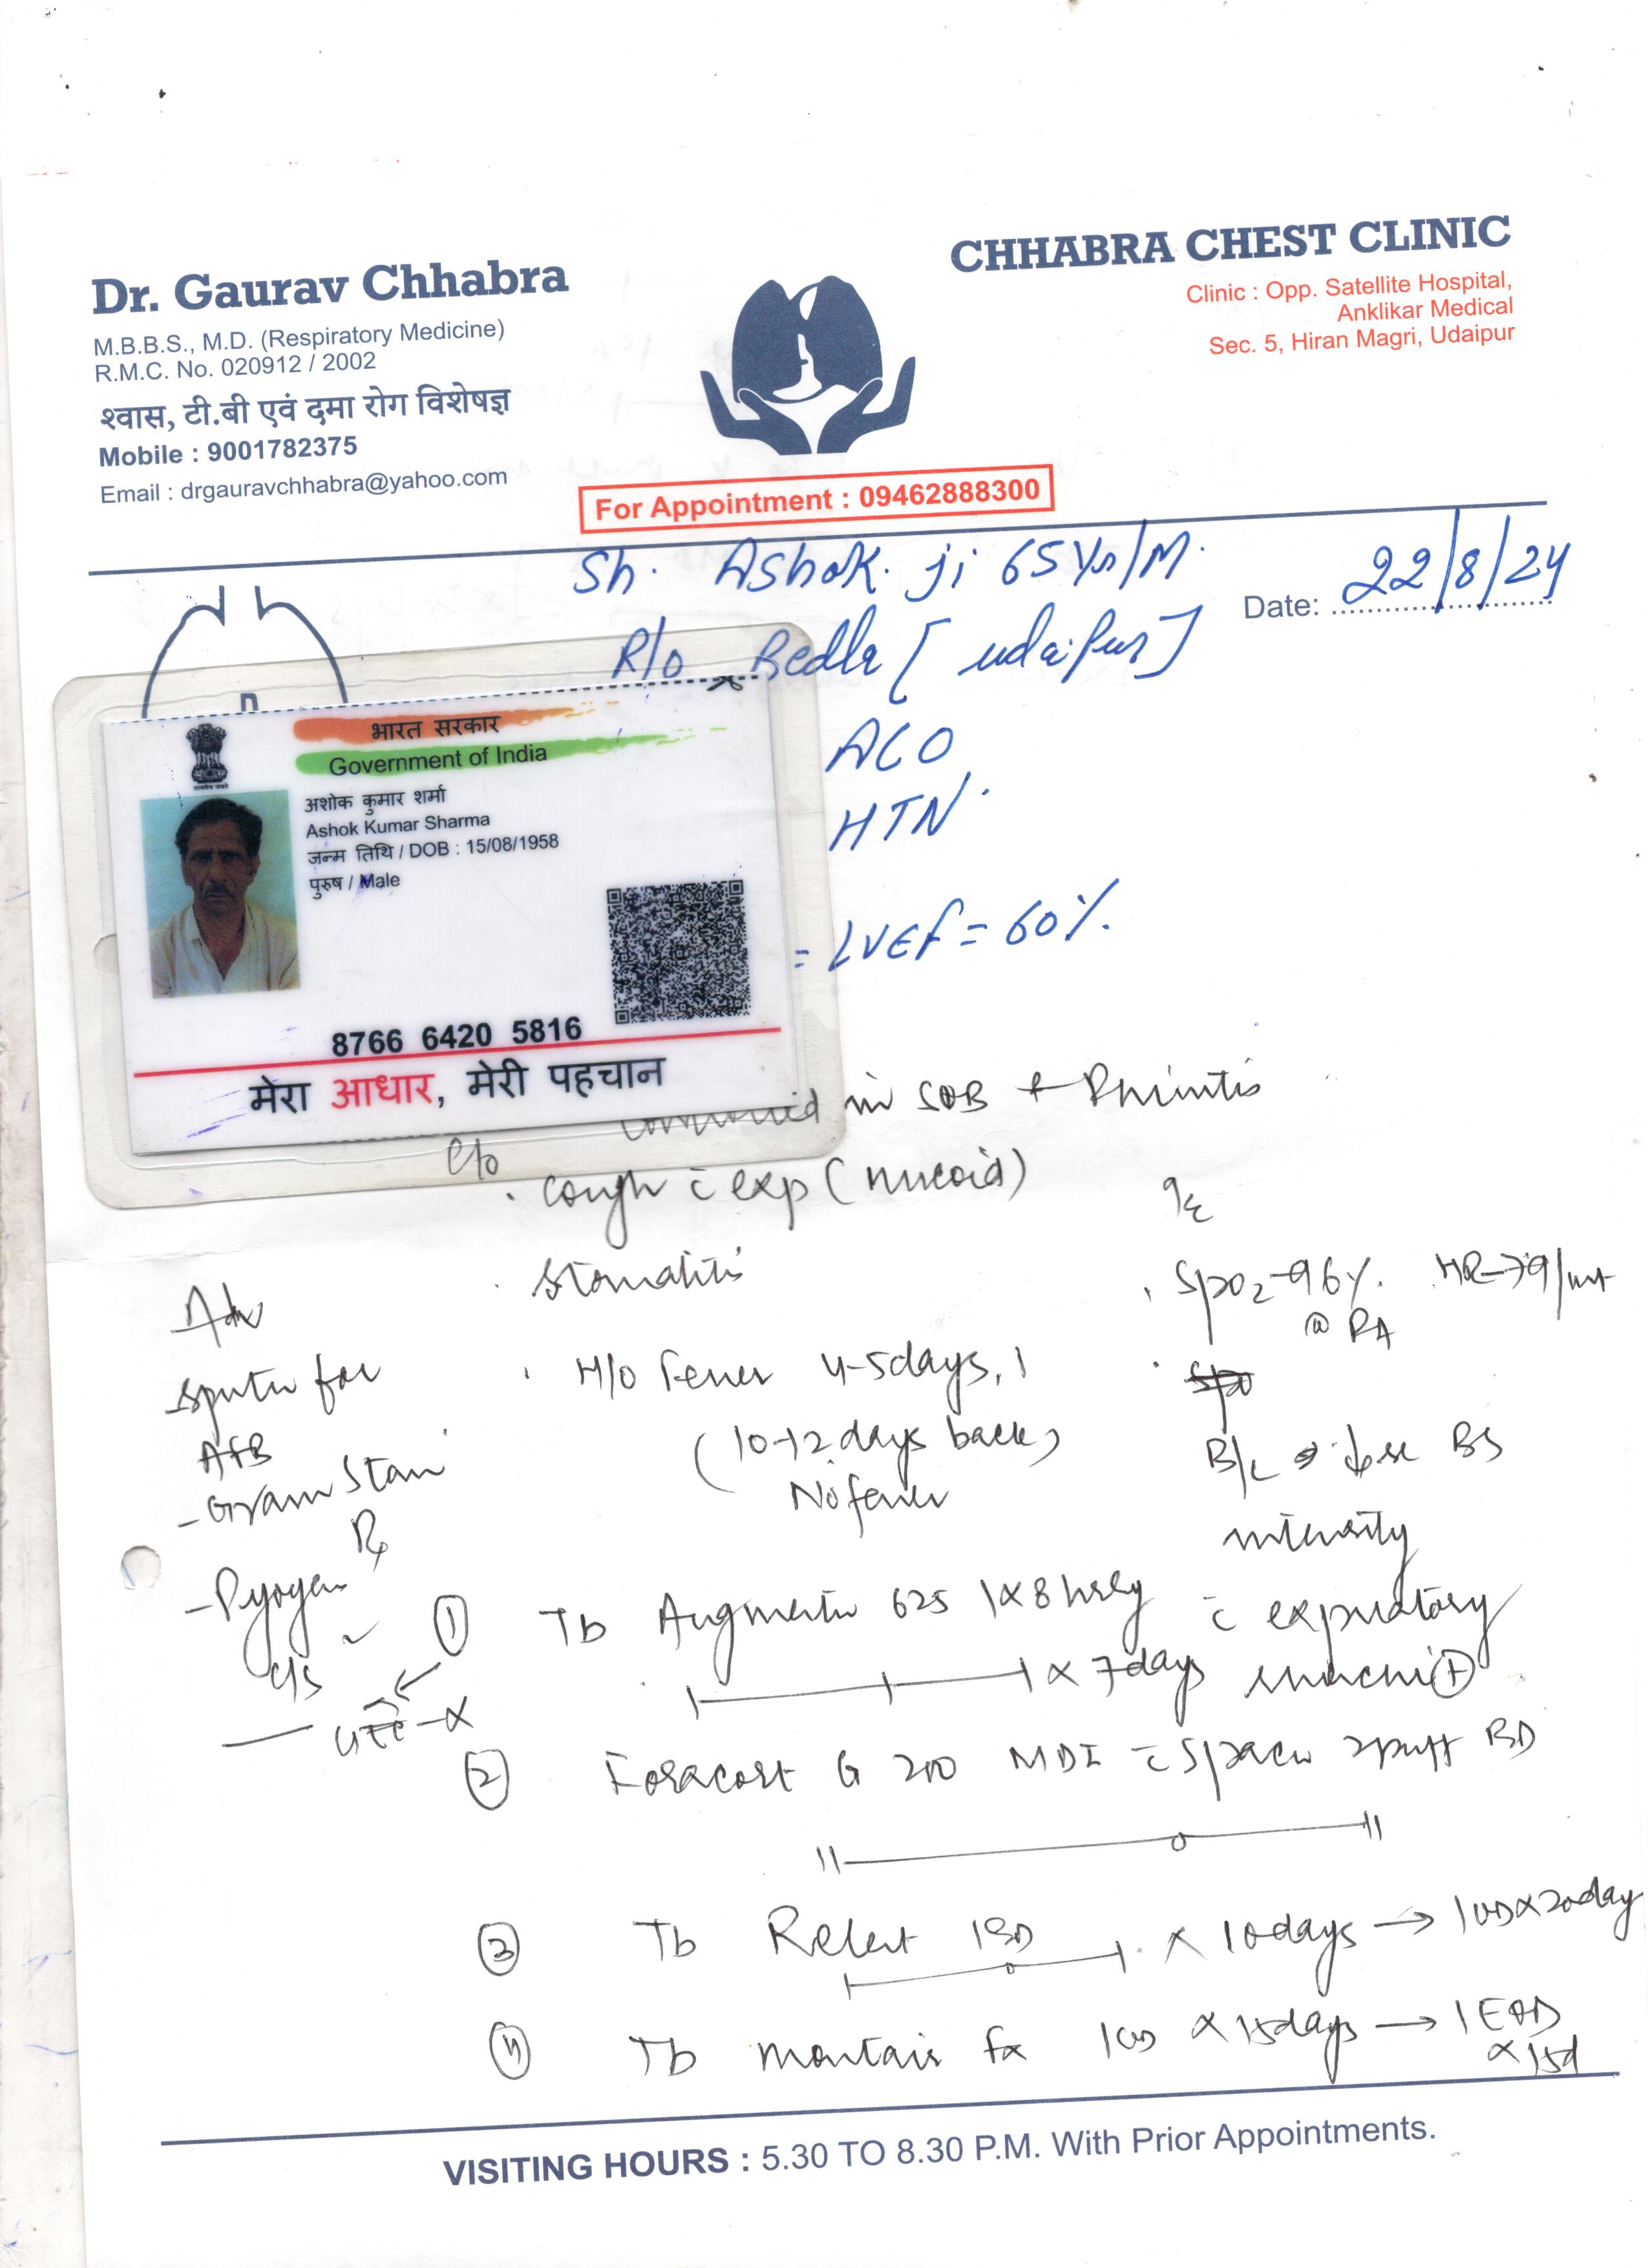 Dr. Gaurav Chhabra
M.B.B.S., M.D. (Respiratory Medicine)
R.M.C. No. 020912 / 2002
श्वास, टी.बी एवं दमा रोग विशेषज्ञ
Mobile : 9001782375
Email : drgauravchhabra@yahoo.com
CHHABRA CHEST CLINIC
Clinic : Opp. Satellite Hospital,
Anklikar Medical
Sec. 5, Hiran Magri, Udaipur
For Appointment : 09462888300
Sh. Ashok. ji 65 Yrs/M.
Date: 22/8/24
R/o Bedla [udaipur]
ACO
HTN.
= LVEF = 60%.
भारत सरकार
Government of India
अशोक कुमार शर्मा
Ashok Kumar Sharma
जन्म तिथि / DOB : 15/08/1958
पुरुष / Male
8766 6420 5816
मेरा आधार, मेरी पहचान
in SOB + Rhinitis
c/o
. cough c̄ exp (mucoid)
. Stomatitis
. H/o Fever 4-5days,
(10-12 days back)
No fever
SpO2-96%. HR-79/mt
@ RA
B/L BS
intensity
c̄ expiratory
Adv
sputu for
AFB
- Gram Stain
- Pyogen
c/s
Rx
① Tb Augmentin 625 1x8 hrly
x 7days
② Foracort G 200 MDI c̄ Spacer 2puff BD
③ Tb Relent 1BD x 10days → 1OD x 20day
④ Tb montair fx 1OD x 15days → 1 EOD
x 15d
VISITING HOURS : 5.30 TO 8.30 P.M. With Prior Appointments.